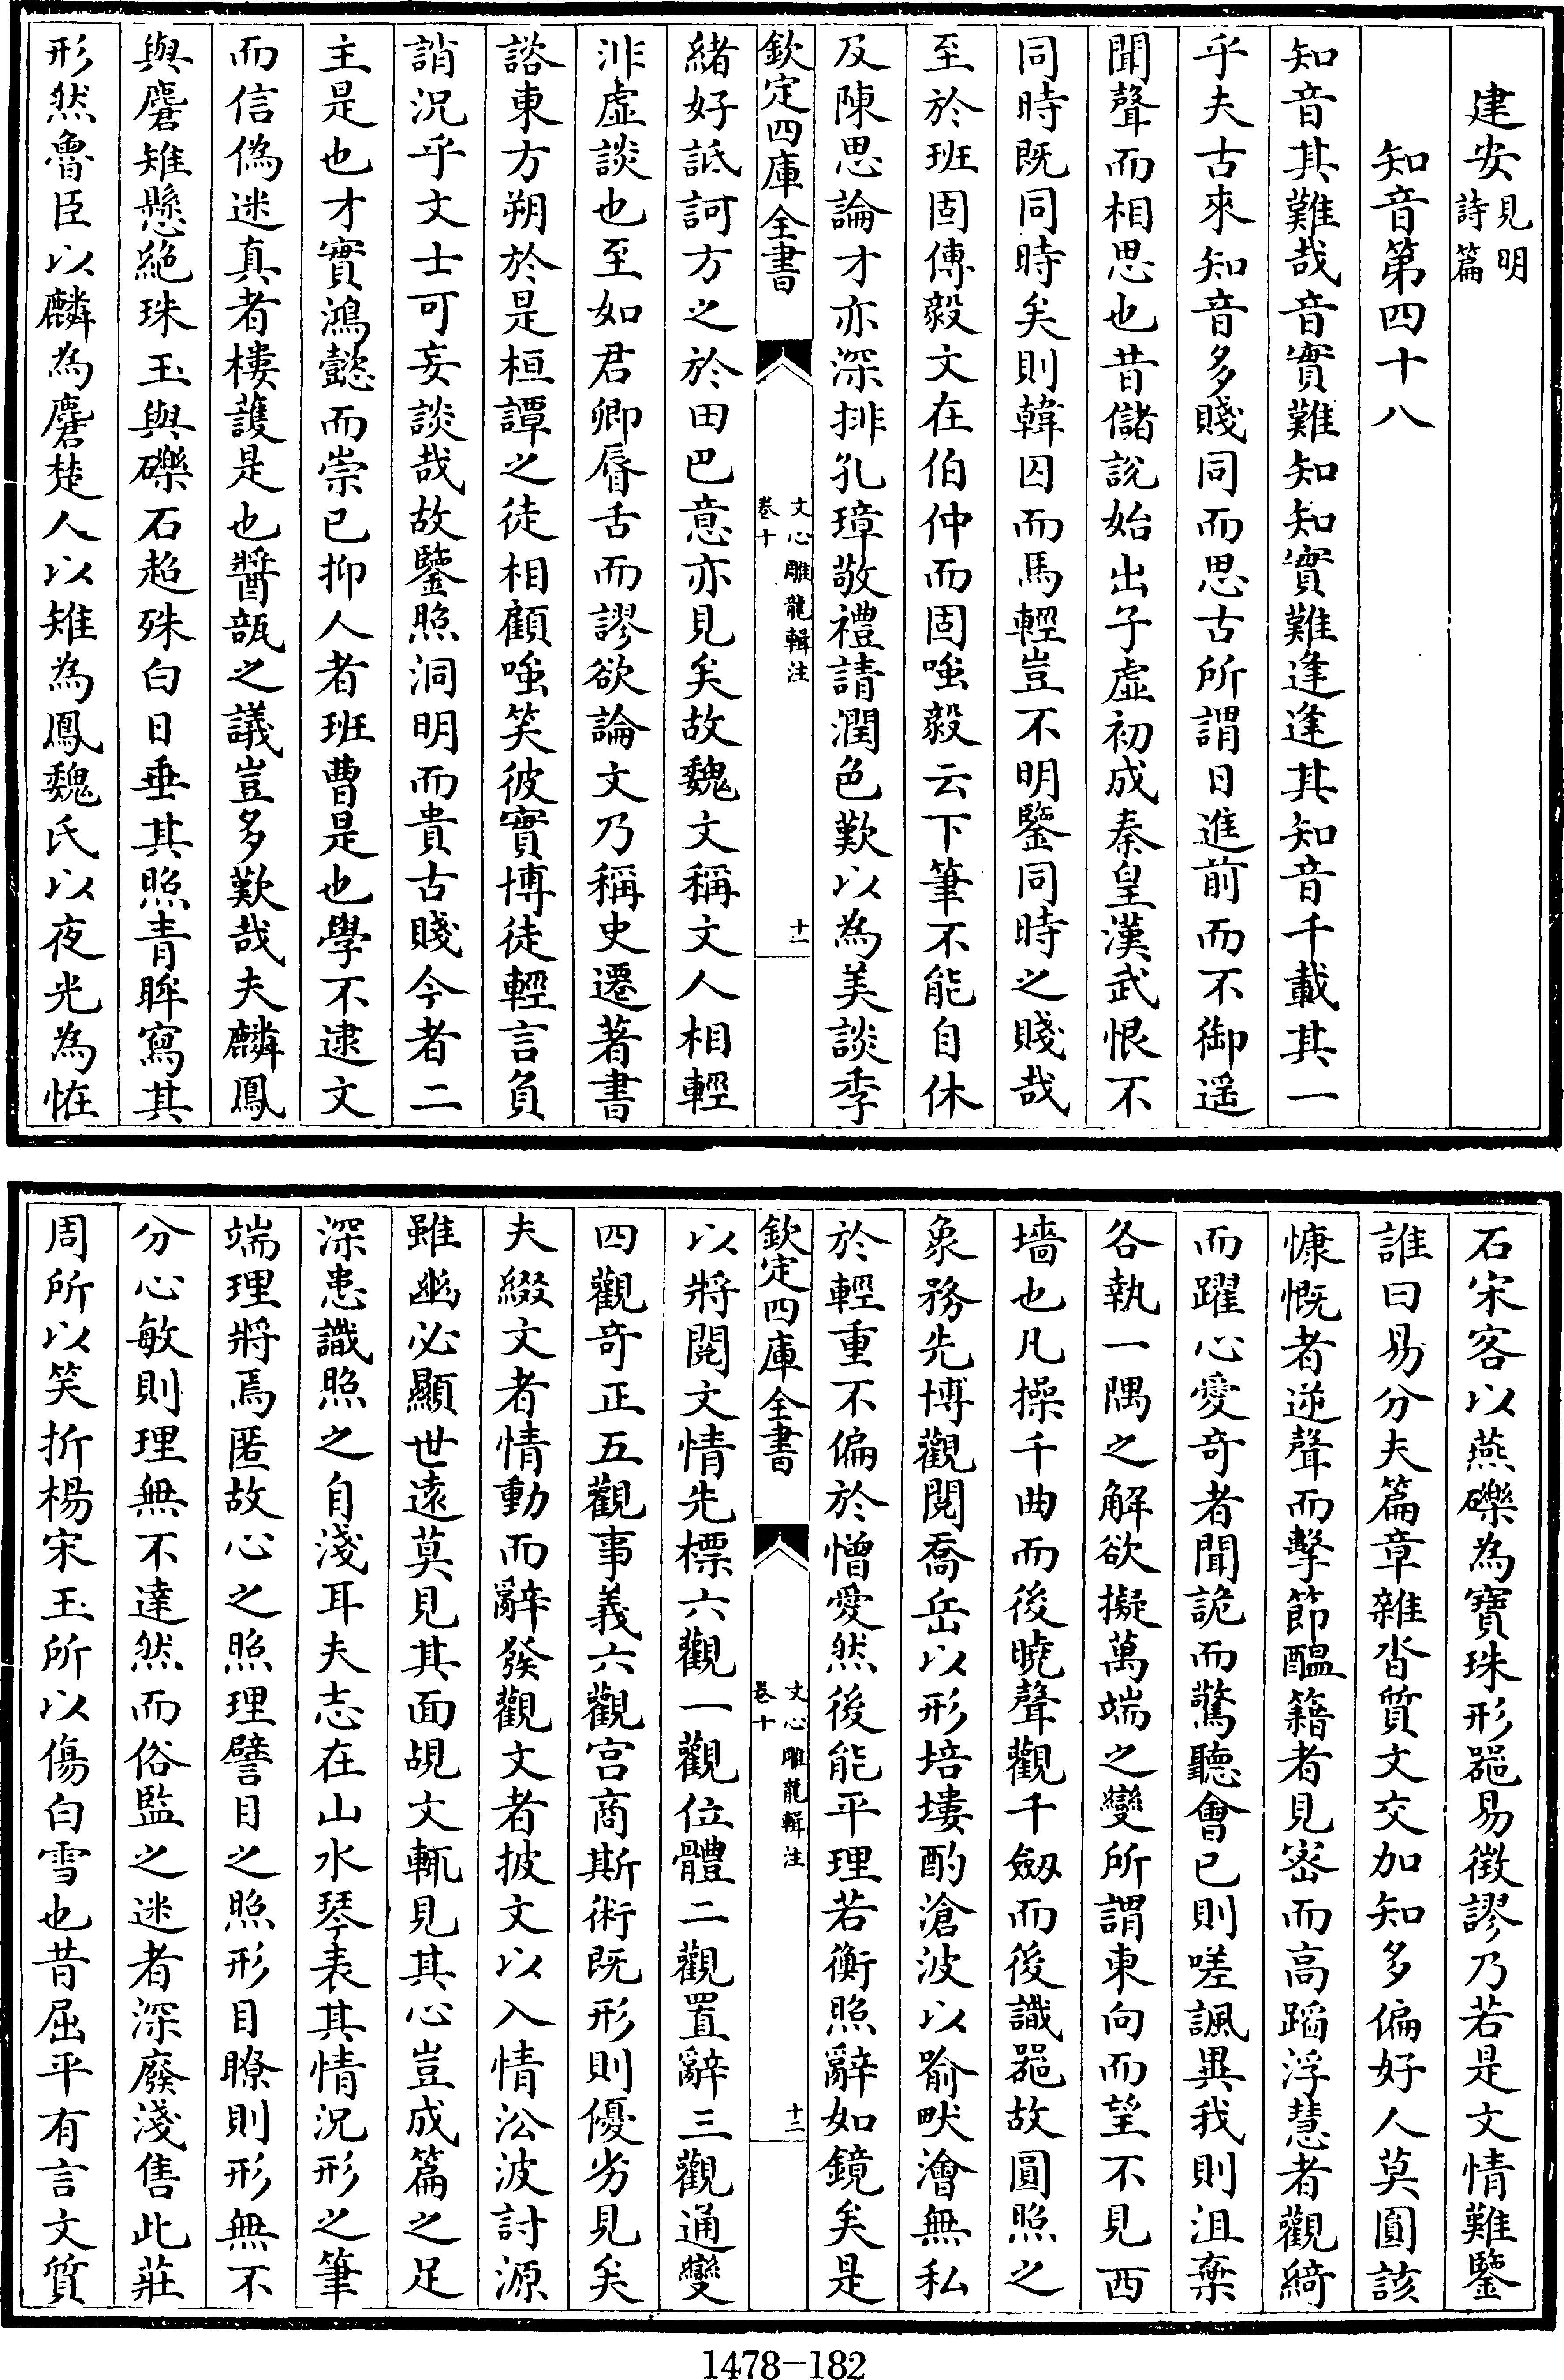 建安見明詩篇
知音第四十八
知音其難哉音實難知知實難逢逢其知音千載其一
乎夫古來知音多賤同而思古所謂日進前而不御遥
聞聲而相思也昔儲說始出子虛初成秦皇漢武恨不
同時既同時矣則韓囚而馬輕豈不明鑒同時之賤哉
至於班固傅毅文在伯仲而固嗤毅云下筆不能自休
及陳思論才亦深排孔璋敬禮請潤色歎以為美談季
欽定四庫全書
文心雕龍輯注
卷十
十一
緒好詆訶方之於田巴意亦見矣故魏文稱文人相輕
非虛談也至如君卿脣舌而謬欲論文乃稱史遷著書
諮東方朔於是桓譚之徒相顧嗤笑彼實博徒輕言負
誚況乎文士可妄談哉故鑒照洞明而貴古賤今者二
主是也才實鴻懿而崇已抑人者班曹是也學不逮文
而信偽迷真者樓護是也醬瓿之議豈多歎哉夫麟鳳
與麏雉懸絕珠玉與礫石超殊白日垂其照青眸寫其
形然魯臣以麟為麏楚人以雉為鳳魏氏以夜光為恠
石宋客以燕礫為寶珠形器易徵謬乃若是文情難鑒
誰曰易分夫篇章雜沓質文交加知多偏好人莫圓該
慷慨者逆聲而擊節醖籍者見宻而高蹈浮慧者觀綺
而躍心愛奇者聞詭而驚聽會已則嗟諷異我則沮棄
各執一隅之解欲擬萬端之變所謂東向而望不見西
墻也凡操千曲而後曉聲觀千劔而後識器故圓照之
象務先博觀閱喬岳以形培塿酌滄波以喻畎澮無私
於輕重不偏於憎愛然後能平理若衡照辭如鏡矣是
欽定四庫全書
文心雕龍輯注
卷十
十二
以將閱文情先標六觀一觀位體二觀置辭三觀通變
四觀奇正五觀事義六觀宫商斯術既形則優劣見矣
夫綴文者情動而辭發觀文者披文以入情沿波討源
雖幽必顯世遠莫見其面覘文輒見其心豈成篇之足
深患識照之自淺耳夫志在山水琴表其情況形之筆
端理將焉匿故心之照理譬目之照形目瞭則形無不
分心敏則理無不達然而俗監之迷者深廢淺售此莊
周所以笑折楊宋玉所以傷白雪也昔屈平有言文質
1478-182